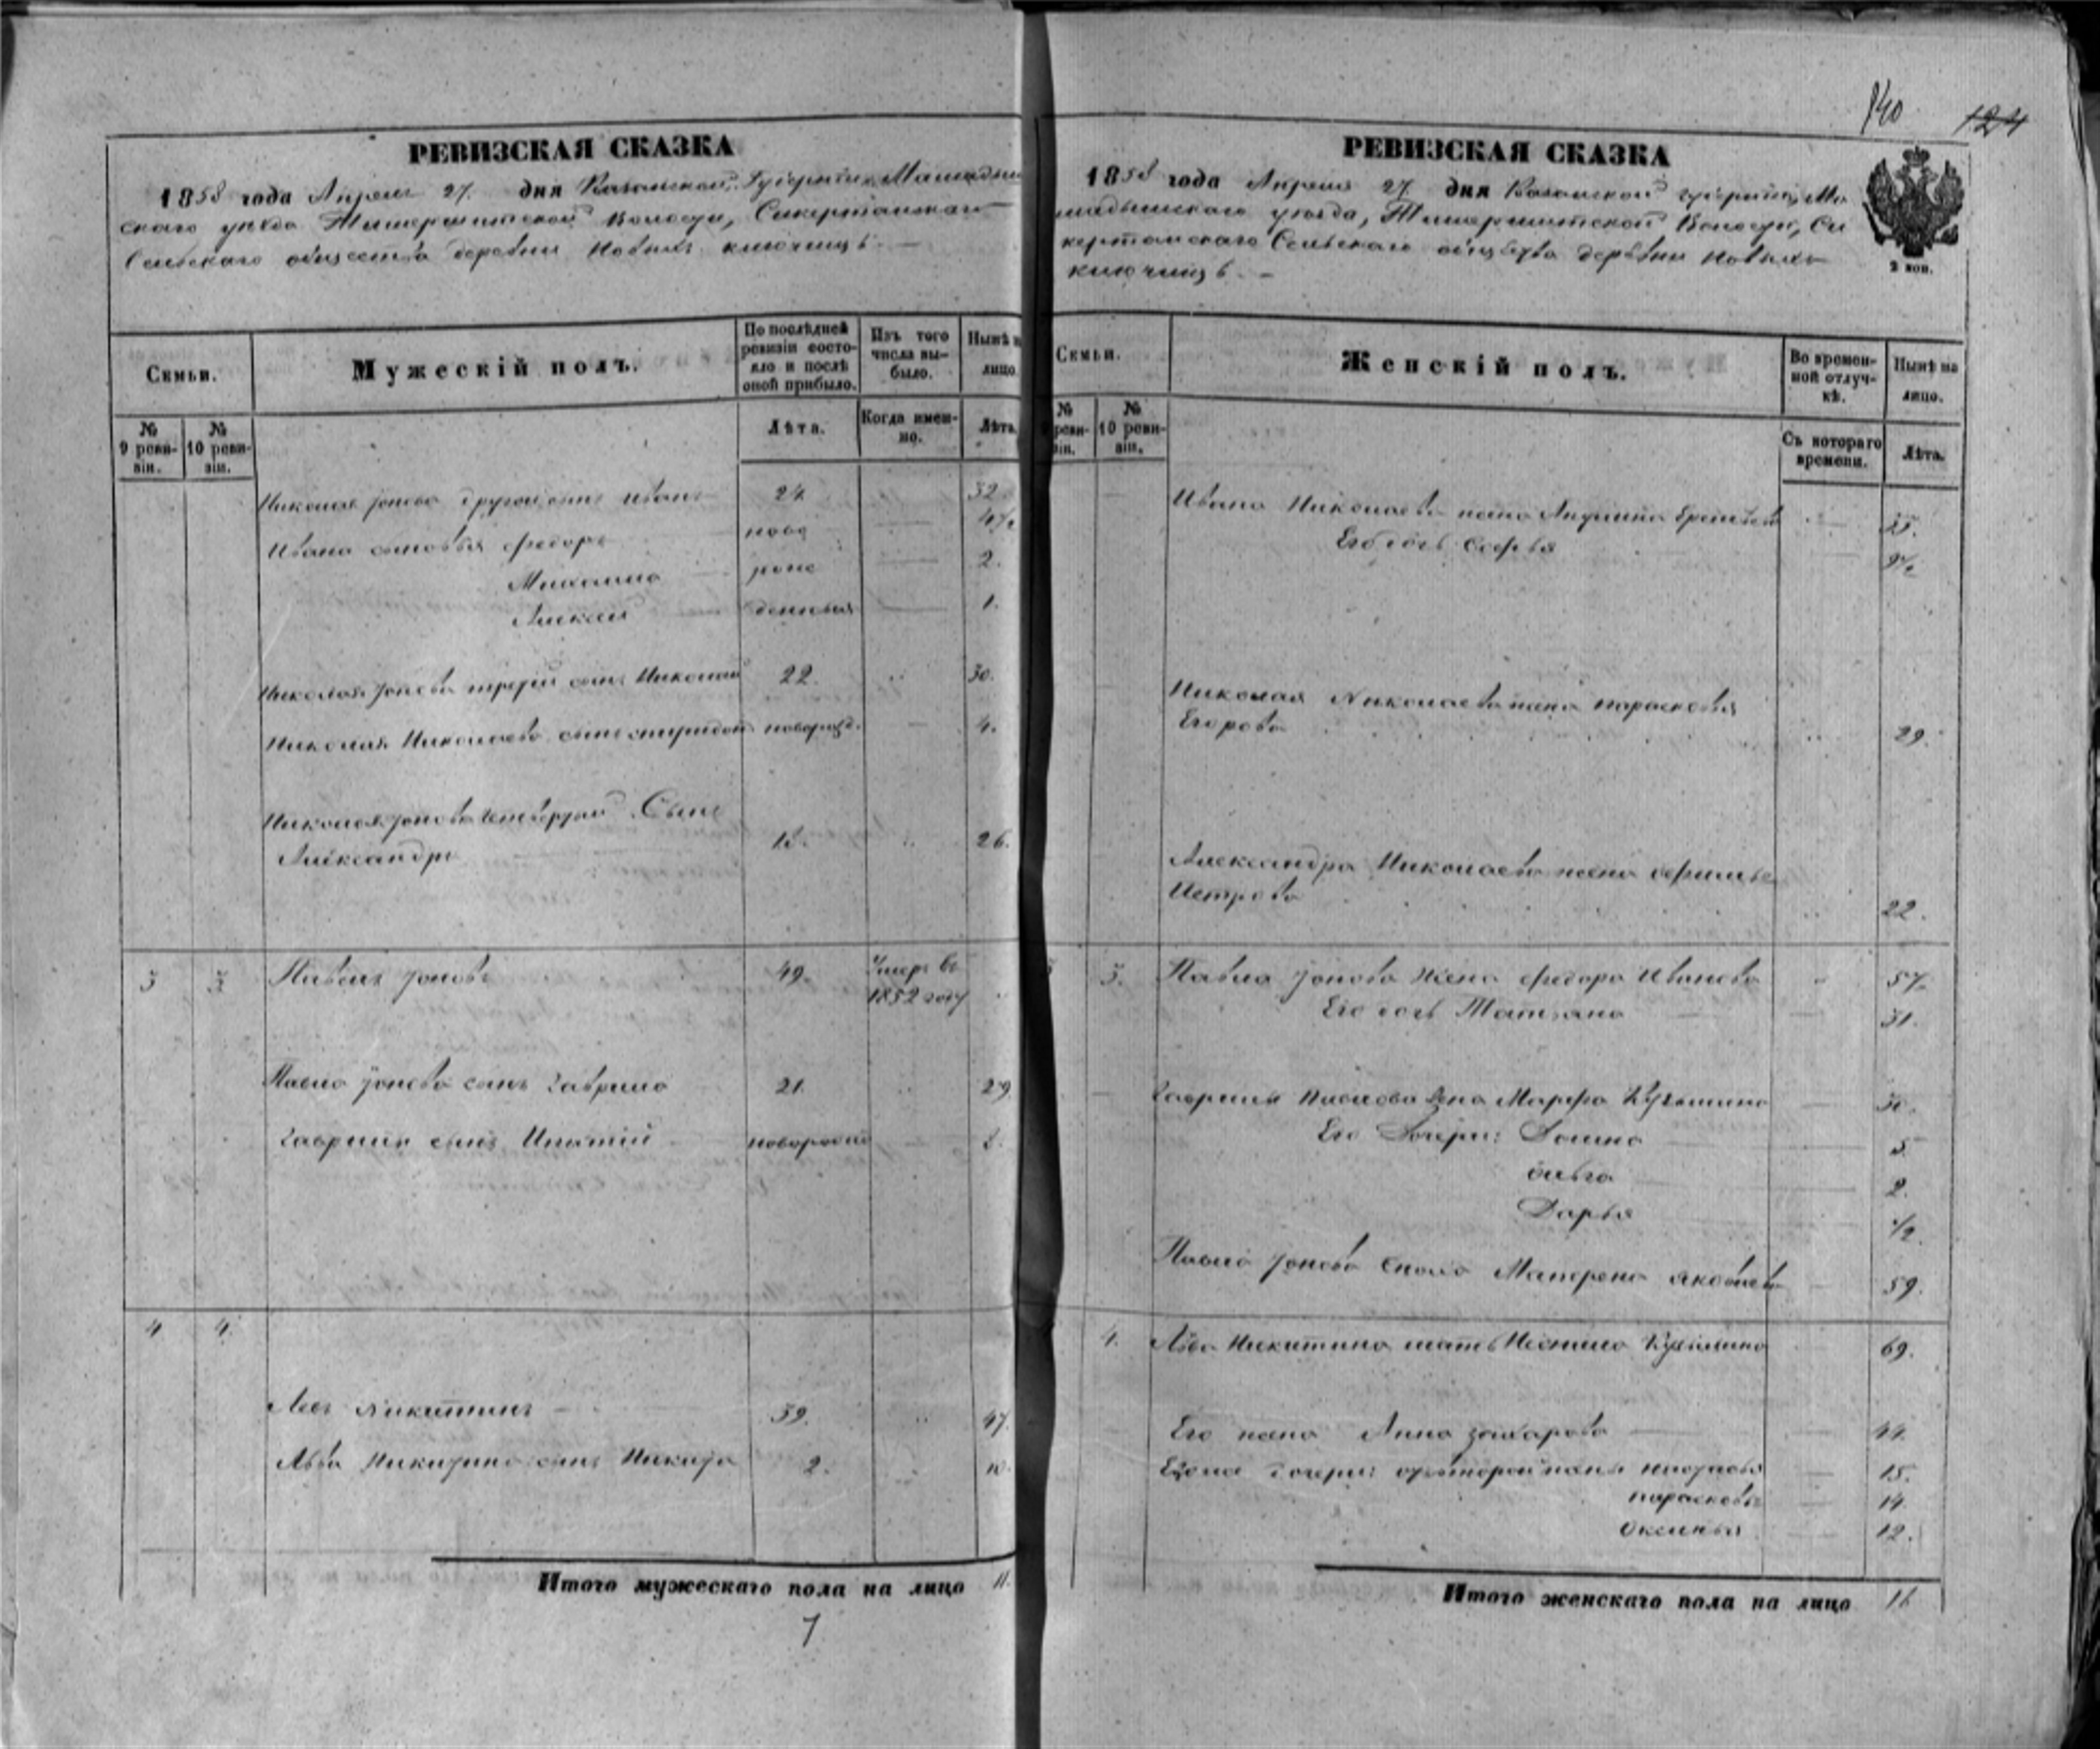 140 124
РЕВИЗСКАЯ СКАЗКА
1858 года Апреля 27. дня Казанской Губернии, Мамадыш
скаго уезда Волости,
Сельскаго общества деревни Новыхъ ключищъ. —
Семьи.
Мужескій полъ.
По послѣдней
ревизіи состо-
яло и послѣ
оной прибыло.
Изъ того
числа вы-
было.
Нынѣ н
лицо.
№
9 реви-
зіи.
№
10 реви-
зіи.
Лѣта.
Когда имен-
но.
Лѣта.
Николая Іонова другой сынъ Иванъ 24. 32.
Ивана сыновья Федоръ ново 4½
Михаило рож 2.
Алексей денныя 1.
Николая Іонова третій сынъ Николай 22. 30.
Николая Николаева сынъ Спиридонъ новорожд. 4.
Николая Іонова четвертый Сынъ
Александръ 18. 26.
3 3 Павелъ Іоновъ 49. Умеръ въ
1852 году
Павла Іонова сынъ Гаврило 21. 29.
Гаврилы сынъ Ипатій 3.
4 4
Левъ Никитинъ 39. 47.
Льва Никитина сынъ Никита 2. 10.
Итого мужескаго пола на лицо 11.
7
РЕВИЗСКАЯ СКАЗКА
1858 года Апреля 27 дня Казанской губерніи, Ма
мадышскаго уезда, Волости, Си
кертанскаго Сельскаго общества деревни Новыхъ
ключищъ. —
2 коп.
Семьи.
Женскій полъ.
Во времен-
ной отлуч-
кѣ.
Нынѣ на
лицо.
№
реви-
зіи.
№
10 реви-
зіи.
Съ котораго
времени.
Лѣта.
Ивана Николаева жена
Его дочь Софья
Николая Николаева жена Парасковья
Егорова 29.
Александра Николаева жена
Петрова 22.
3. Павла Іонова Жена Федора Иванова 57.
Его дочь Татьяна 31.
Гаврилы Павлова жена Марфа Кузьмина 30.
Его Дочери: Домна 5.
Ольга 2.
Дарья ½
Павла Іонова сноха Матрена Яковлева 59.
4. Льва Никитина мать Неонила Кузьмина 69.
Его жена Анна Захарова 44.
дочери: отъ второй жены Настасья 15.
Парасковья 14.
Оксинья 12.
Итого женскаго пола на лицо 16